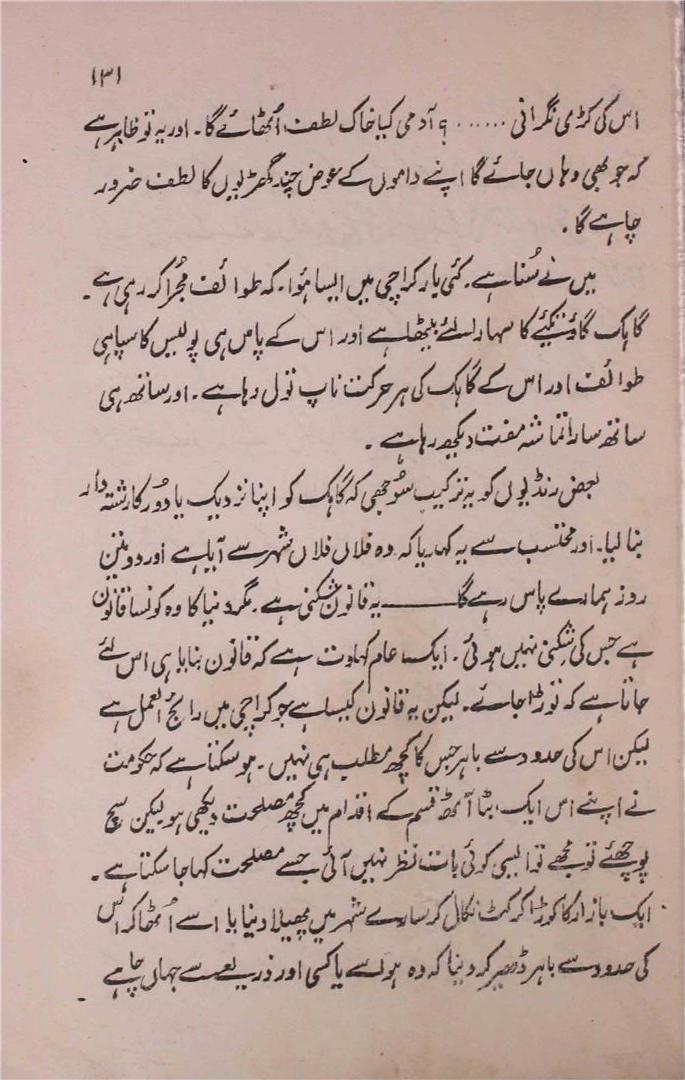 ۱۳۱
اس کی کڑی نگرانی ...... ؟ آدمی کیا خاک لطف اُٹھائے گا۔ اور یہ تو ظاہر ہے
کہ جو بھی وہاں جائے گا اپنے داموں کے عوض چند گھڑیوں کا لطف ضرور
چاہے گا۔
میں نے سُنا ہے۔ کئی بار کراچی میں ایسا ہوا۔ کہ طوائف مُجرا کر رہی ہے۔
گاہک گاؤ تکیئے کا سہارا لئے بیٹھا ہے اور اس کے پاس ہی پولیس کا سپاہی
طوائف اور اس کے گاہک کی ہر حرکت ناپ تول رہا ہے۔ اور ساتھ ہی
ساتھ سارا تماشہ مفت دیکھ رہا ہے۔
بعض رنڈیوں کو یہ ترکیب سُوجھی کہ گاہک کو اپنا نزدیک یا دُور کا رشتہ دار
بنا لیا۔ اور محتسب سے یہ کہہ دیا کہ وہ فلاں فلاں شہر سے آیا ہے اور دو تین
روز ہمارے پاس رہے گا ـــــــ یہ قانون شکنی ہے۔ مگر دنیا کا وہ کونسا قانون
ہے جس کی شکنی نہیں ہوئی۔ ایک عام کہاوت ہے کہ قانون بنایا ہی اس لئے
جاتا ہے کہ توڑا جائے۔ لیکن یہ قانون کیسا ہے جو کراچی میں رائج العمل ہے
لیکن اس کی حدود سے باہر جس کا کچھ مطلب ہی نہیں۔ ہو سکتا ہے کہ حکومت
نے اپنے اس ایک بٹا آٹھ قسم کے اقدام میں کچھ مصلحت دیکھی ہو لیکن سچ
پوچھئے تو مجھے تو ایسی کوئی بات نظر نہیں آئی جسے مصلحت کہا جا سکتا ہے۔
ایک بازار کا کوڑا کرکٹ نکال کر سارے شہر میں پھیلا دینا یا اسے اُٹھا کر اس
کی حدود سے باہر ڈھیر کر دینا کہ وہ ہوا سے یا کسی اور ذریعے سے جہاں چاہے